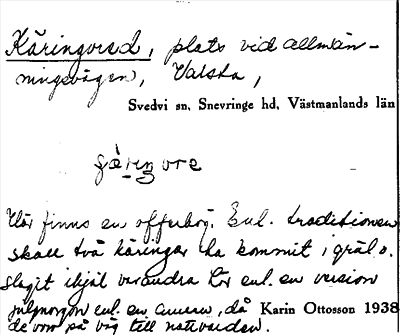 Käringved, plats vid allmän-
ningsvägen, Valsta,
Svedvi sn, Snevringe hd, Västmanlands län
Här finns en offerhög. Enl. traditionen
skall två käringar ha kommit i gräl o.
slagit ihjäl varandra här enl. en version
julmorgon enl. en annan, då
Karin Ottosson 1938
de voro på väg till nattvarden.